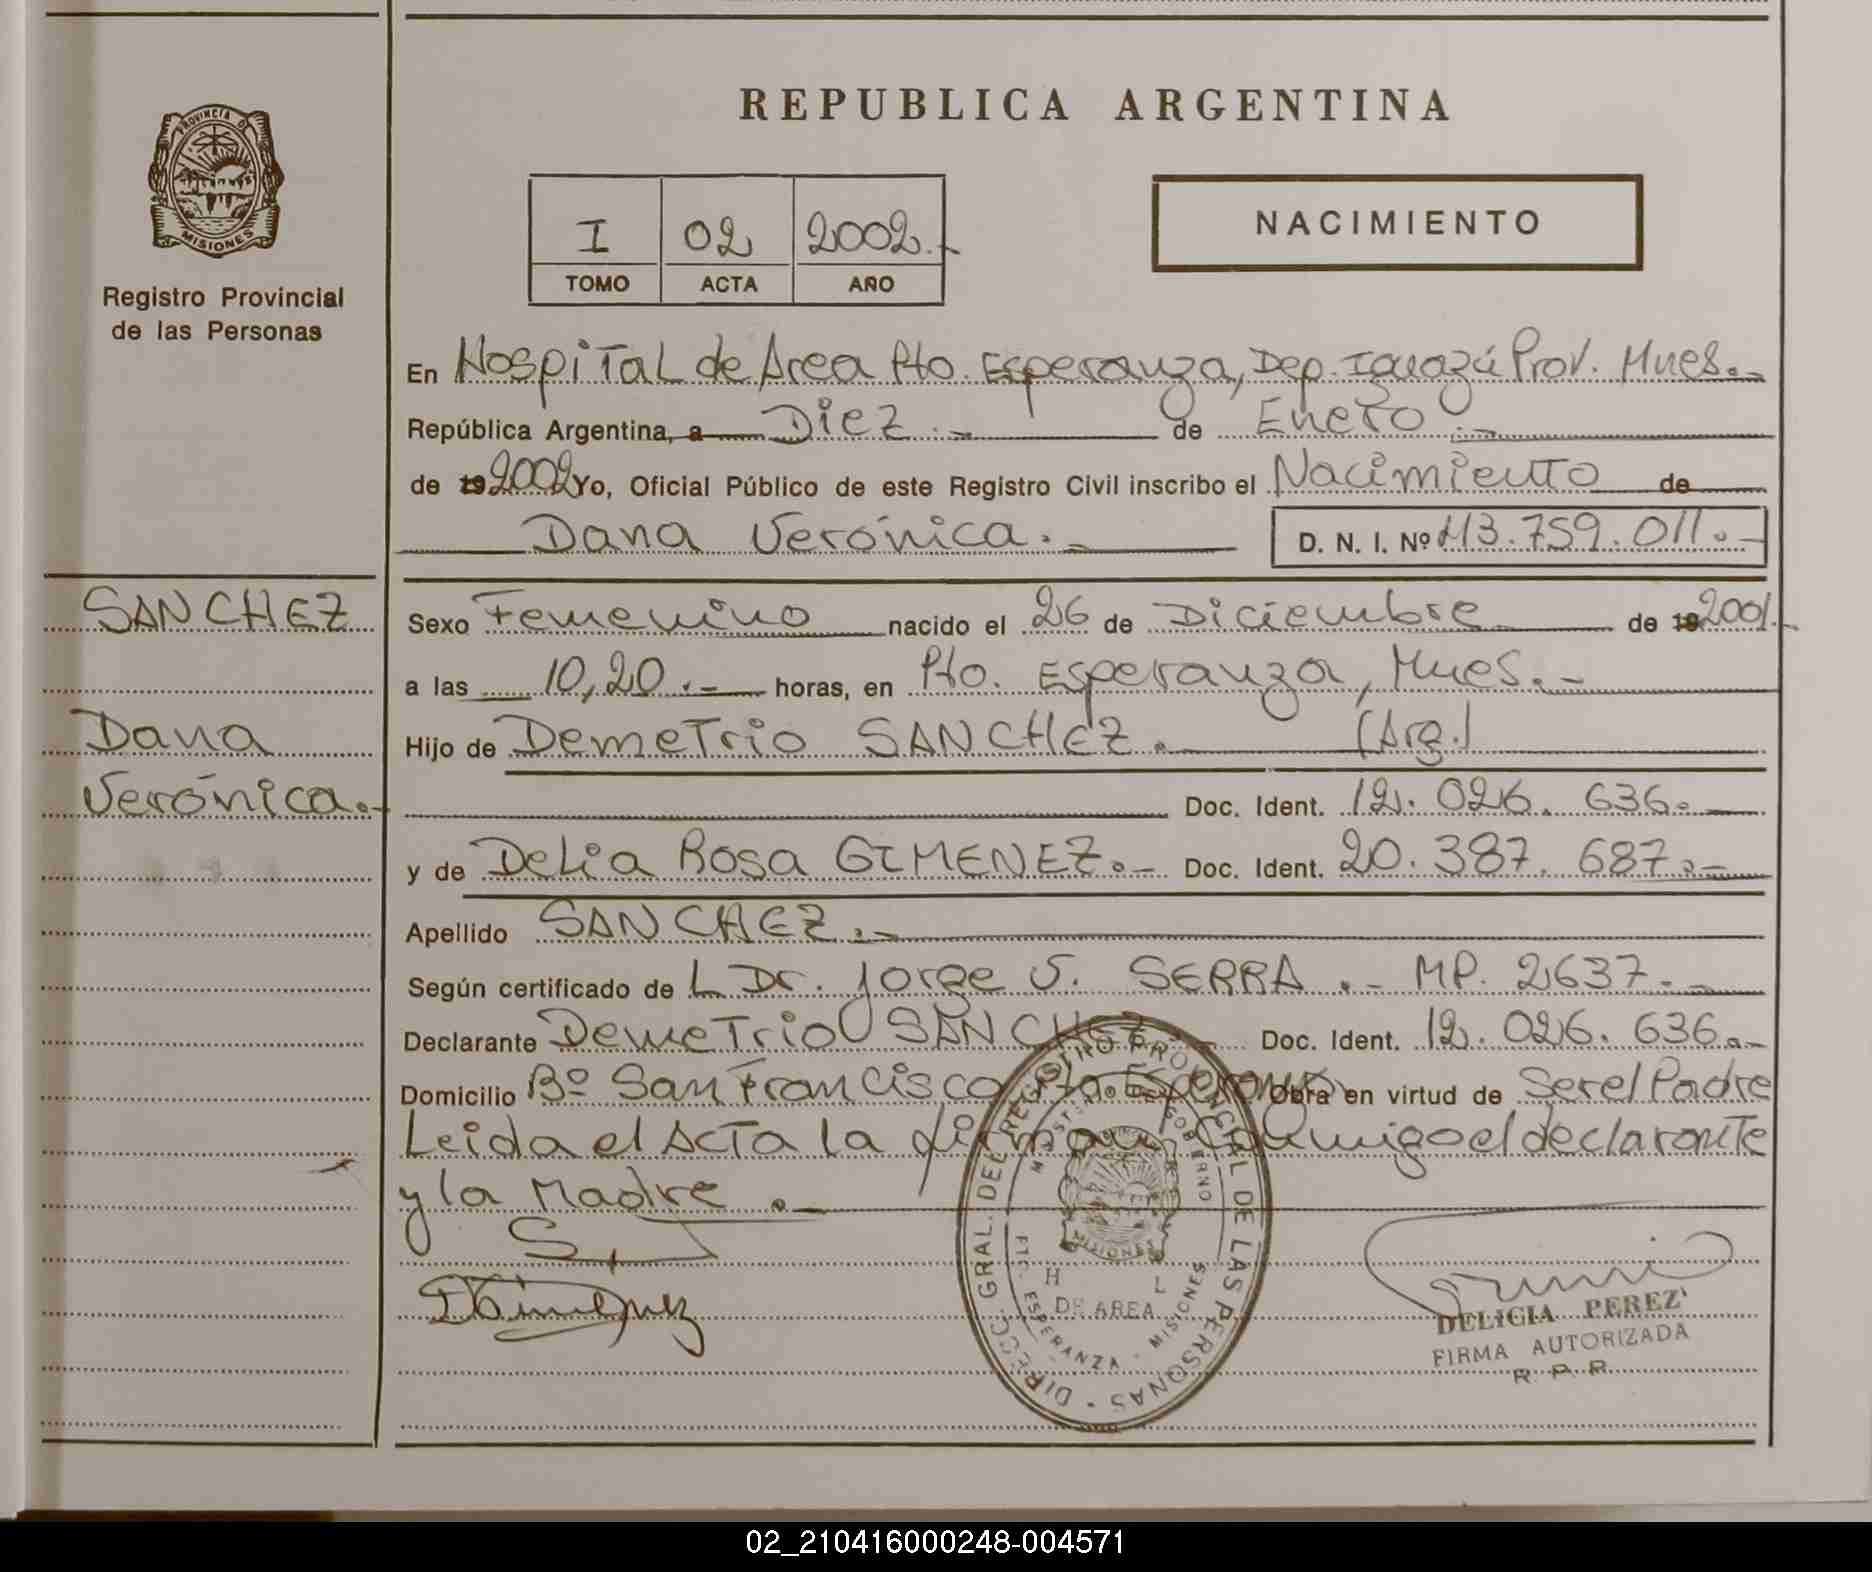 REPUBLICA ARGENTINA
PROVINCIA DE
MISIONES
Registro Provincial
de las Personas
I 02 2002.-
TOMO ACTA AÑO
NACIMIENTO
En Hospital de Area Pto. Esperanza, Dep. Iguazú Prov. Mnes.-
República Argentina, a Diez.- de Enero.-
de 19 2002 Yo, Oficial Público de este Registro Civil inscribo el Nacimiento de
Dana Verónica.- D. N. I. Nº 43.759.011.-
SANCHEZ
Dana
Verónica.-
Sexo Femenino nacido el 26 de Diciembre de 19 2001.-
a las 10,20.- horas, en Pto. Esperanza, Mnes.-
Hijo de Demetrio SANCHEZ.- (Arg.)
Doc. Ident. 12.026.636.-
y de Delia Rosa GIMENEZ.- Doc. Ident. 20.387.687.-
Apellido SANCHEZ.-
Según certificado de L Dr. Jorge V. SERRA.- MP. 2637.-
Declarante Demetrio SANCHEZ.- Doc. Ident. 12.026.636.-
Domicilio Bº San Francisco Pto. Esperanza Obra en virtud de Ser el Padre
Leida el Acta la firman Conmigo el declarante
y la Madre.-
DIREC. GRAL. DEL REGISTRO PROVINCIAL DE LAS PERSONAS
MISIONES
DE AREA
PTO. ESPERANZA - MISIONES
DGimenez
DELICIA PEREZ
FIRMA AUTORIZADA
R. P. P.
02_210416000248-004571